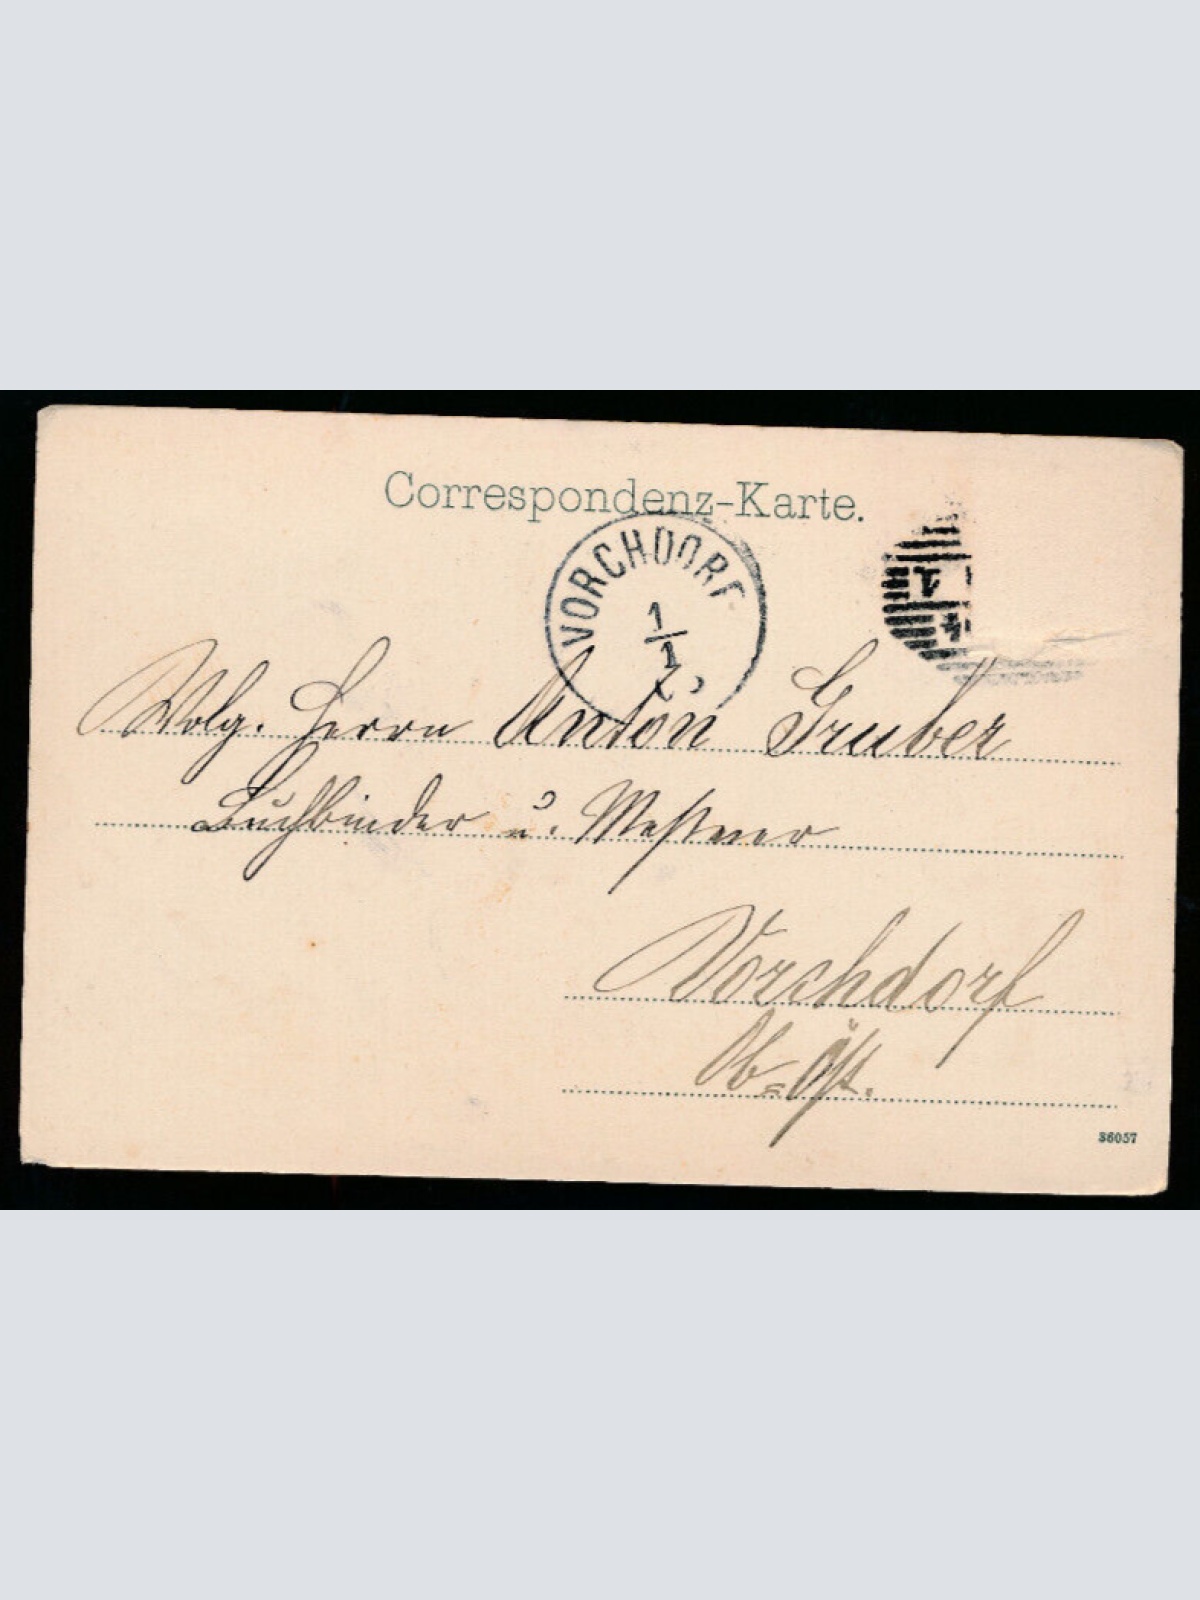 Correspondenz-Karte.
VORCHDORF
1
1
Wolg. Herrn Anton Gruber
Buchbinder u. Messner
Vorchdorf
Ob=Öst.
36057